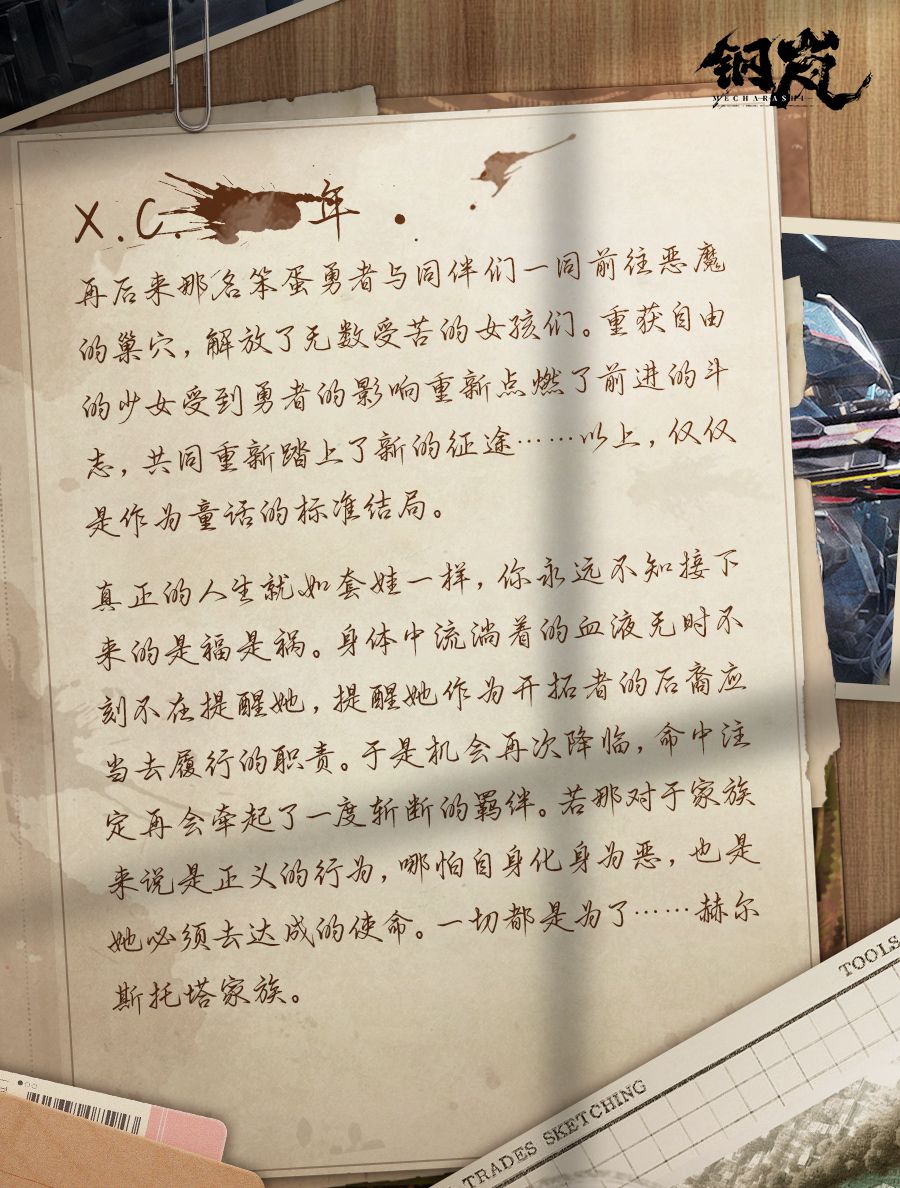 钢岚
MECHARASHI
X.C. 年.
再后来那名笨蛋勇者与同伴们一同前往恶魔
的巢穴，解放了无数受苦的女孩们。重获自由
的少女受到勇者的影响重新点燃了前进的斗
志，共同重新踏上了新的征途……以上，仅仅
是作为童话的标准结局。
真正的人生就如套娃一样，你永远不知接下
来的是福是祸。身体中流淌着的血液无时不
刻不在提醒她，提醒她作为开拓者的后裔应
当去履行的职责。于是机会再次降临，命中注
定再会牵起了一度斩断的羁绊。若那对于家族
来说是正义的行为，哪怕自身化身为恶，也是
她必须去达成的使命。一切都是为了……赫尔
斯托塔家族。
TOOLS
TRADES SKETCHING